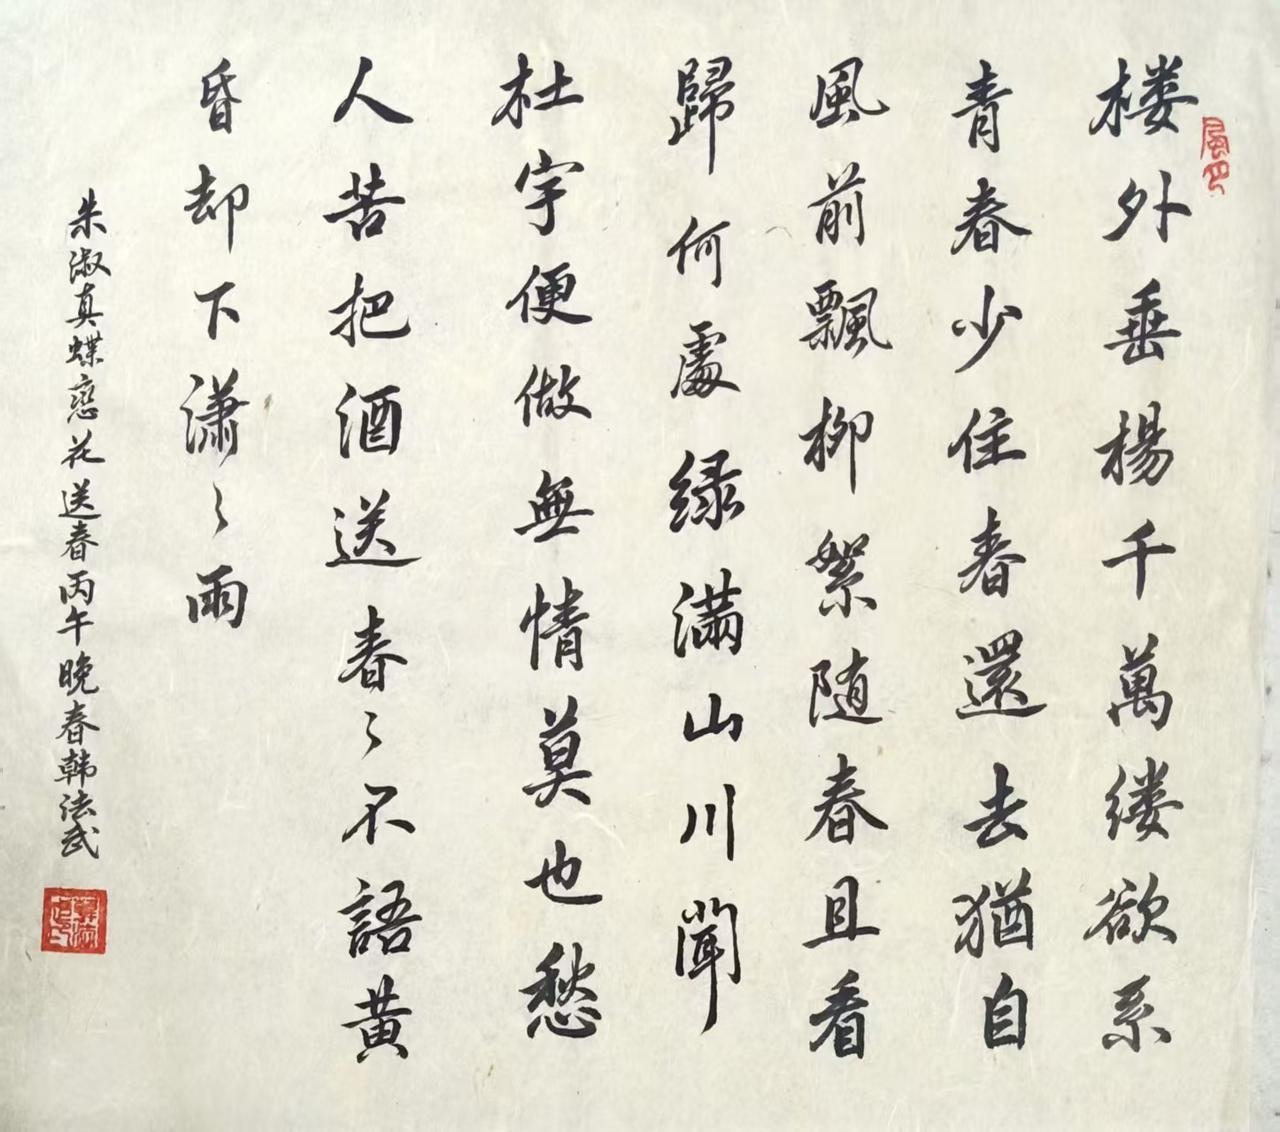 楼外垂楊千萬缕欲系
青春少住春還去猶自
風前飄柳絮随春且看
歸何處绿满山川聞
杜宇便做無情莫也愁
人苦把酒送春〻不語黄
昏却下潇〻雨
朱淑真蝶戀花送春丙午晚春韩法武